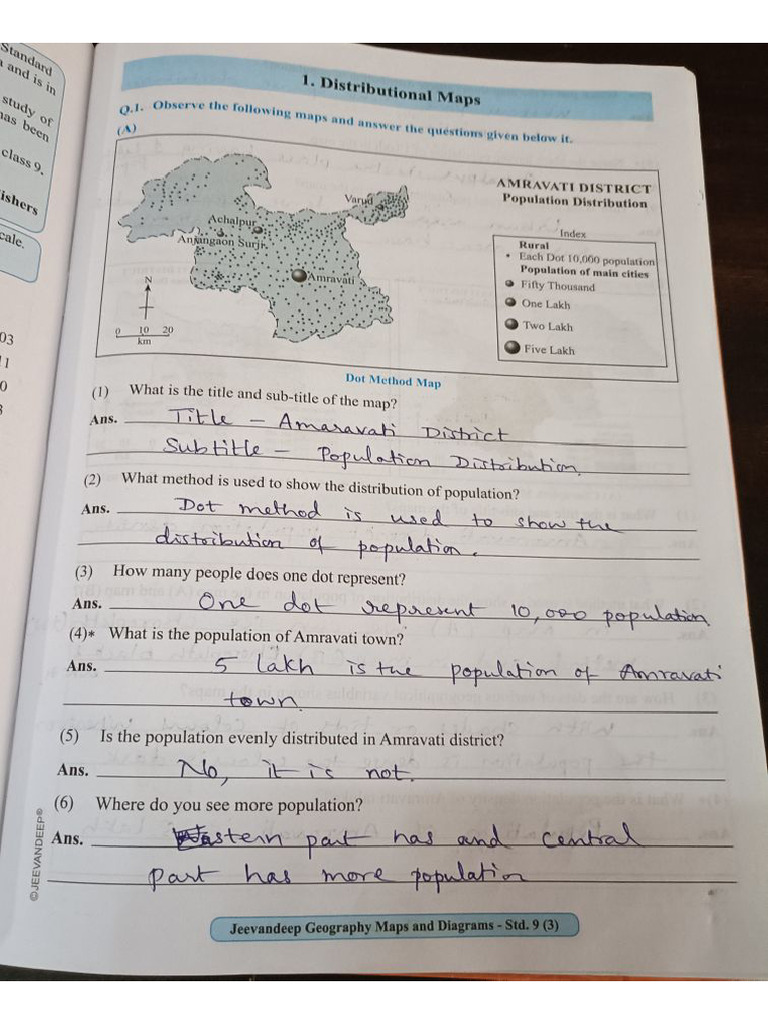 Standard
a and is in
study of
has been
class 9.
ishers
cale.
03
11
0
1. Distributional Maps
Q.1. Observe the following maps and answer the questions given below it.
(A)
AMRAVATI DISTRICT
Population Distribution
Varud
Achalpur
Anjangaon Surji
Amravati
N
0 10 20
km
Index
Rural
Each Dot 10,000 population
Population of main cities
Fifty Thousand
One Lakh
Two Lakh
Five Lakh
Dot Method Map
(1) What is the title and sub-title of the map?
Ans. Title - Amaravati District
Subtitle - Population Distribution
(2) What method is used to show the distribution of population?
Ans. Dot method is used to show the
distribution of population.
(3) How many people does one dot represent?
Ans. One dot represent 10,000 population
(4)* What is the population of Amravati town?
Ans. 5 lakh is the population of Amravati
town.
(5) Is the population evenly distributed in Amravati district?
Ans. No, it is not.
(6) Where do you see more population?
Ans. Eastern part has and central
part has more population
©JEEVANDEEP®
Jeevandeep Geography Maps and Diagrams - Std. 9 (3)